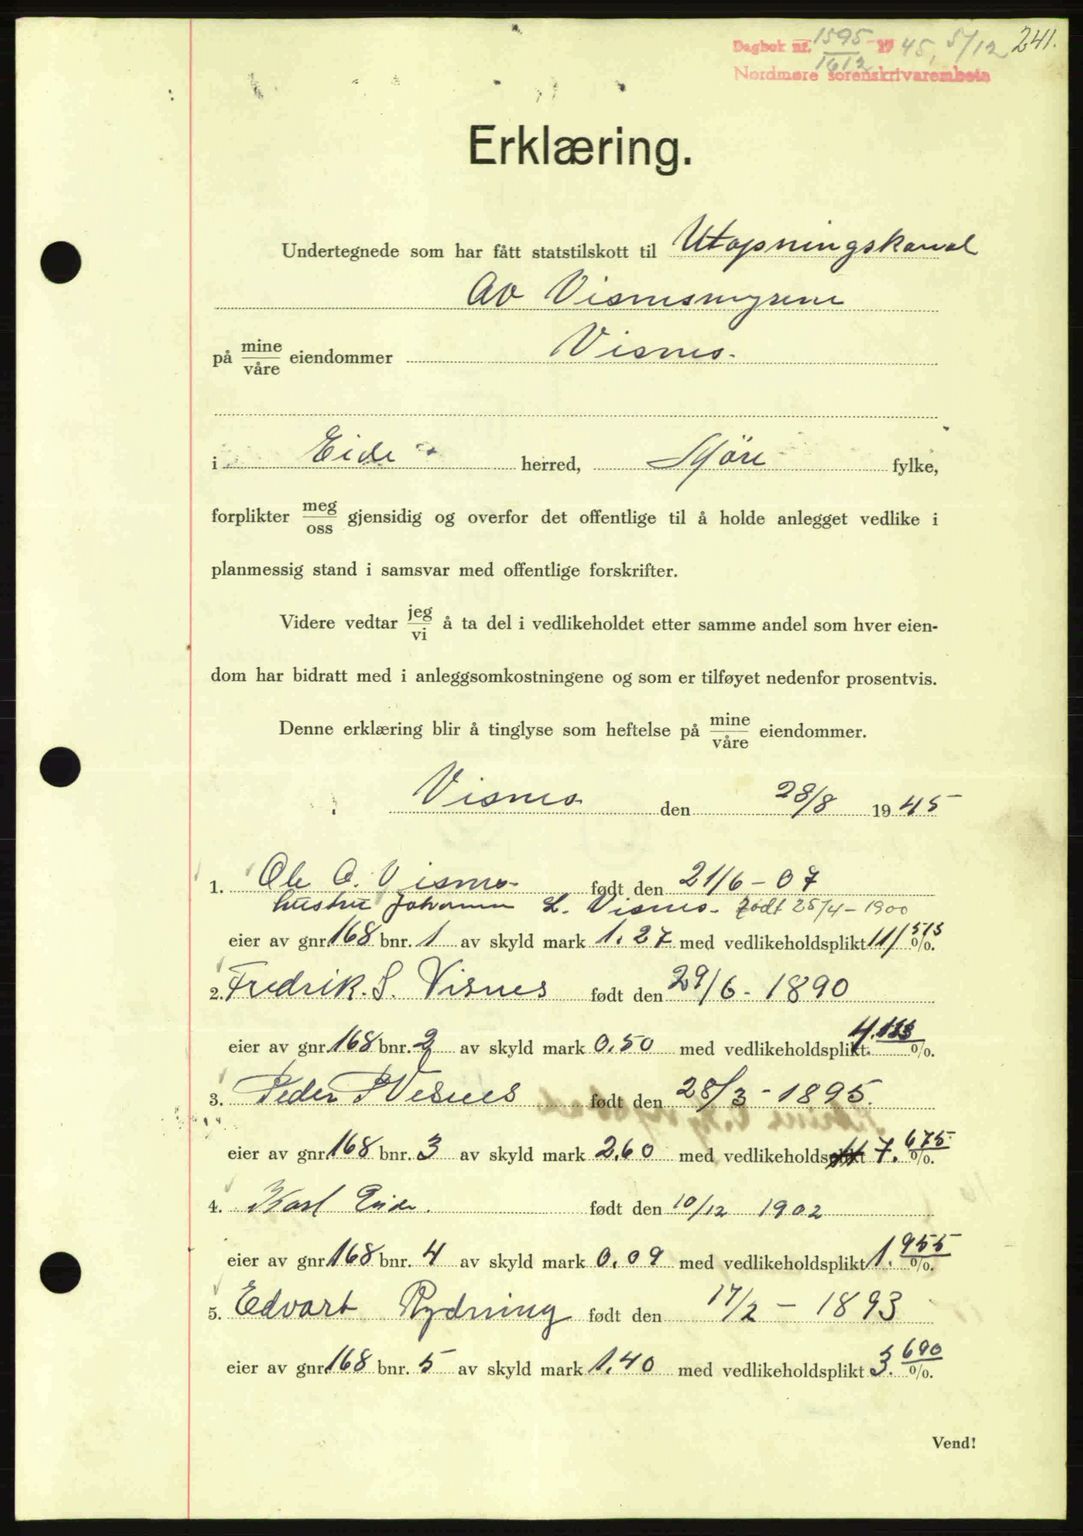 Dagbok nr. 1595 1945, 5/12 241.
1612
Nordmøre sorenskrivarembete
Erklæring.
Undertegnede som har fått statstilskott til Utapningskanal
Av Visnesmyrene
på mine/våre eiendommer Visnes.
i Eide herred, Møre fylke,
forplikter meg/oss gjensidig og overfor det offentlige til å holde anlegget vedlike i
planmessig stand i samsvar med offentlige forskrifter.
Videre vedtar jeg/vi å ta del i vedlikeholdet etter samme andel som hver eien-
dom har bidratt med i anleggsomkostningene og som er tilføyet nedenfor prosentvis.
Denne erklæring blir å tinglyse som heftelse på mine/våre eiendommer.
Visnes den 28/8 1945
1. Ole O. Visnes født den 21/6 - 07
hustru Johanna L. Visnes. født 25/4 - 1900
eier av gnr. 168 bnr. 1 av skyld mark 1.27 med vedlikeholdsplikt 11, %.
2. Fredrik. S. Visnes født den 29/6 - 1890
eier av gnr. 168 bnr. 2 av skyld mark 0.50 med vedlikeholdsplikt 4. %.
3. Peder P Visnes født den 28/3 - 1895.
eier av gnr. 168 bnr. 3 av skyld mark 2.60 med vedlikeholdsplikt 7.675 %.
4. Karl Eide. født den 10/12 1902
eier av gnr. 168 bnr. 4 av skyld mark 0.09 med vedlikeholdsplikt 1.955 %.
5. Edvart Rydning født den 17/2 - 1893
eier av gnr. 168 bnr. 5 av skyld mark 1.40 med vedlikeholdsplikt 3.690 %.
Vend!